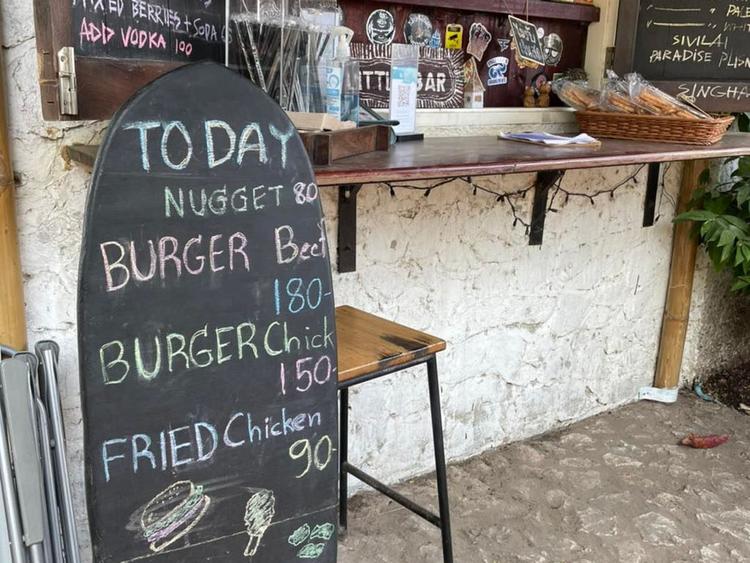 MIXED BERRIES + SODA
ADD VODKA 100
BAR
SIVILAI
SINGHA
TODAY
NUGGET 80
BURGER Beef
180-
BURGER Chick
150-
FRIED Chicken
90-